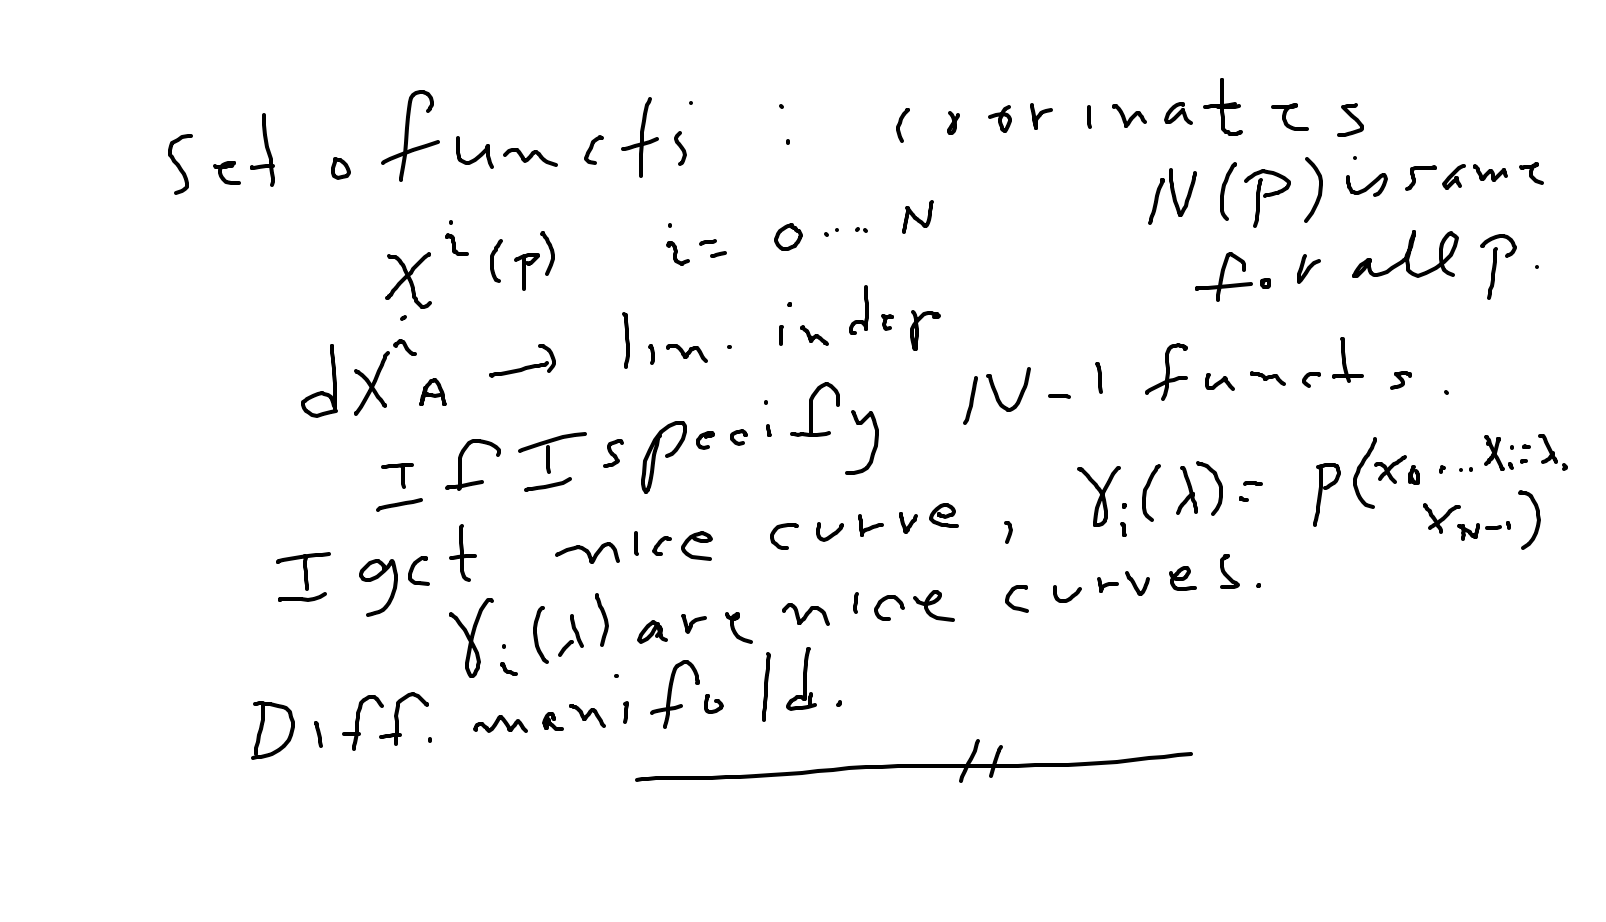 Set o functs : coorinates
x^i(p) i = 0 .... N
N(P) is same
for all P.
dx^i_A → lin. indep
If I specify N-1 functs.
I get nice curve, γ_i(λ) = p(x_0 .... x_i = λ,
x_{N-1})
γ_i(λ) are nice curves.
Diff. manifold.